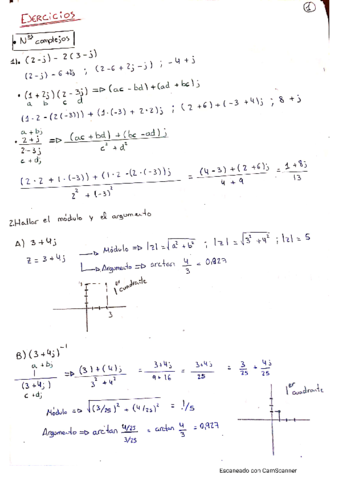 EJERCICIOS
1
• Nºs complejos
1. (2-j) - 2(3-j)
(2-j) - 6+2j ; (2-6+2j-j) ; -4+j
• (1+2j)(2-3j) => (ac-bd)+(ad+bc)j
a b c d
(1·2-(2(-3)))+(1·(-3)+2·2)j ; (2+6)+(-3+4)j ; 8+j
a+bj
• 2+j / 2-3j => (ac+bd)+(bc-ad)j / c²+d²
c+dj
(2·2+1·(-3))+(1·2-(2·(-3))j / 2²+(-3)² = (4-3)+(2+6)j / 4+9 = 1+8j / 13
2. Hallar el módulo y el argumento
A) 3+4j
z=3+4j
Módulo => |z|=√a²+b² ; |z|=√3²+4² ; |z|=5
Argumento => arctan 4/3 = 0,927
1er cuadrante
3
B) (3+4j)⁻¹
a+bj
1 / (3+4j) => (3)+(4)j / 3²+4² = 3+4j / 9+16 = 3+4j / 25 = 3/25 + 4j/25
c+dj
Módulo => √(3/25)²+(4/25)² = 1/5
1er cuadrante
Argumento => arctan 4/25 / 3/25 = arctan 4/3 = 0,927
Escaneado con CamScanner